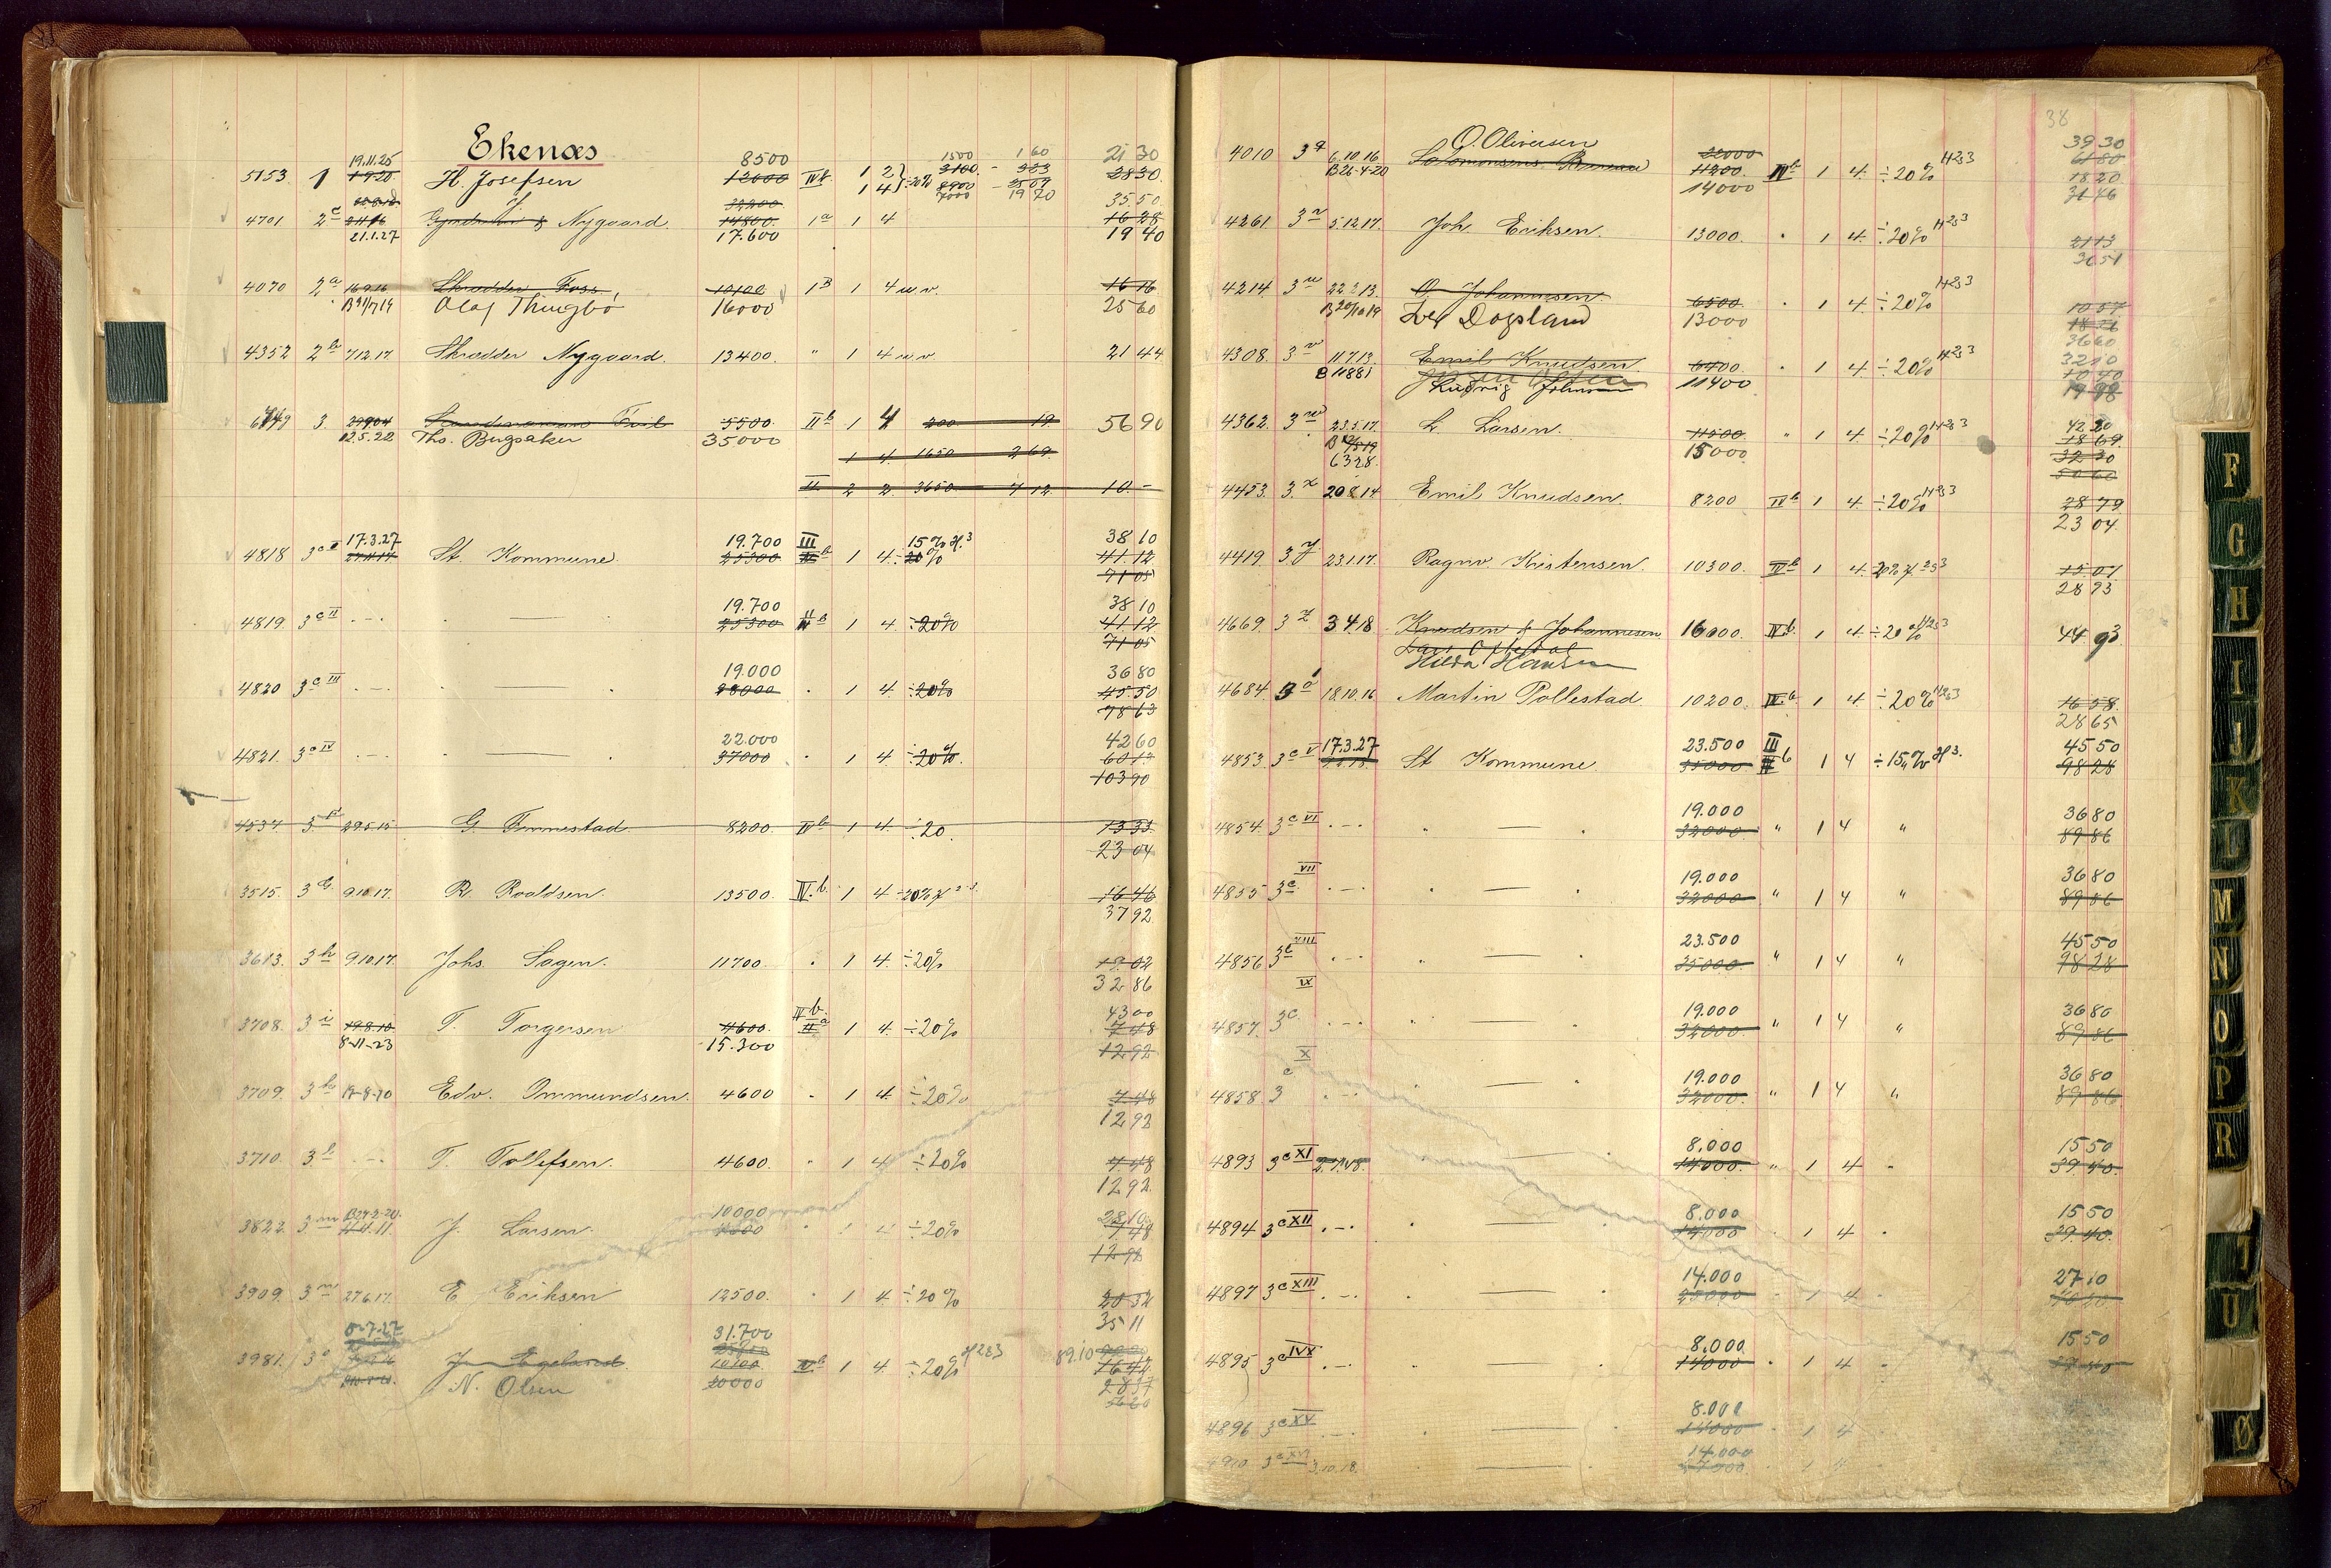 Ekenæs
19.11.25 8500 1500 1 60 21 30
5153 1 1920 H. Josefsen 12000 IVb 1 2 ÷20% 2100 - 28 30
1 4 7000 19 70
32200 35.50
4701 2c Nygaard 14800 1a 1 4 16 28
21.1.27 17.600 19 40
4070 2a 16.9.16 Skrædder Foss 10100 1B 1 4 u.v. 16 16
Olaf Thingbö 16000 25 60
4352 2b 7.12.17 Skrædder Nygaard. 13400. " 1 4 u.v. 21 44
6449 3. 5500 IIb 1 4 200 19 56 90
12.5.22 Ths. Bugsaker 35000
1 4. 1650 2 69.
II 2 2. 3650 7 12 10.-
17.3.27 19.700 III 15% H.3 38 10
4818 3c St. Kommune. 25300 b 1 4 ÷20% 41.12
71 05
19.700 38 10
4819. 3c II -.- 25300 1 4. ÷20% 41 12
71 05
19.000 36 80
4820 3c III -.- 28000 . 1 4. ÷20% 45.50
78 63
22.000 42 60
4821. 3c IV -.- 37000 . 1 4. ÷20%. 60 12
103 90
4537 3. 29.5.15 G. Tmmestad. 8200. IVb 1 4. ÷20. 13 33.
23 04
3515. 3 9.10.17. R. Roaldsen. 13500. IVb. 1 4 ÷20% 16 46
37 92
3613. 3h 9.10.17. Johs. Sagen. 11700. . 1 4. ÷20% 19.02
32 86
IVb. 43 00
3708. 3i 19.8.10 T. Torgersen 4600. IIa 1 4. ÷20% 7 48
8-11-23 15.300 12 92
3709. 3k 19-8-10 Edv. Ommundsen. 4600 . 1 4. ÷20% 7.48
12 92
3710. 3l -.- T. Tollefsen. 4600. . 1 4 ÷20% 7 48
12 92.
B27-2-20. 10000 28 10
3822. 3m 4.4.11. J. Larsen. 4600 . 1 4 ÷20% 7 48
12 92
3909. 3n 27.6.17. E. Eriksen 12500. . 1 4. ÷20% 20 32
35 11
5-7-27 31.700
3981. 3o J. Egeland 10100 IVb 1 4 ÷20% H283 89.10 16 42
N. Olsen 20000 28 37
38
O. Olivesen 39 30
4010 3q 6.10.16 22000 61 80
B26-4-20 11200. IVb 1 4. ÷20% H283 18 20
14000 31 46
4261. 3r 5.12.17. Joh. Eriksen. 13000. . 1 4. ÷20% H283 21 13
36 51
4214. 3u 22.2.13. O. Johannesen. 6500. . 1 4. ÷20% H283 10 57
B20/10 19 Dogsland 13000 18 26
36 60
4308. 3.v 11.7.13. Emil Knudsen. 6400. . 1 4 ÷20% H283 32 10
B 11881 Ludvig 11400 10 40
19 98
4362. 3w 23.5.17. L. Larsen. 11500. " 1 4. ÷20% H283 42 20
6328. 15000 18 69.
32 30
50 60
4453. 3.x 20 8 14 Emil Knudsen. 8200 IVb 1 4. ÷20% H283 28 79
23 04.
4419. 3.y 23.1.17. Ragnv. Kristensen. 10300. IVb 1 4. 20% H 283 15.07
28 93
4669. 3z 3 4.18 Knudsen & Johannesen 16000. IVb. 1 4. ÷20% H283 44 93
Hilda Hansen
4684. 3a 1 18.10.16 Martin Pollestad 10200. IVb. 1 4. ÷20% H283 16 58.
28 65
17.3.27 23.500 III 45 50
4853. 3c V St Kommune 35000 b 1 4 ÷15% H3. 98 28
19.000 36 80
4854. 3c VI -.- 32000 " 1 4 " 89 86
19.000 36 80
4855 3c VII -.- 32000 " 1 4 " 89 86
23.500 45 50
4856 3c VIII -.- 35000 " 1 4 " 98 28
19.000 36 80
4857. 3c IX -.- 32000 " 1 4 " 89 86
19.000 36 80
4858 3c X -.- 32000 " 1 4 " 89 86
8.000 15 50
4893 3c XI 14000. " 1 4 . 39 40.
8.000 15 50
4894 3c XII -.- 14000 . 1 4 . 39.40.
14.000 27 10
4897 3c XIII -.- 25000 . 1 4 .
8.000 15 50
4895 3c IVX -.- 14000 . 1 4 . 39 40
8.000
4896 3c XV -.- 14000 . 1 4
14.000
4910 3c XVI 3.10.18. . 1 4
F
G
H
I
J
K
M
N
O
P
R
U
Ø